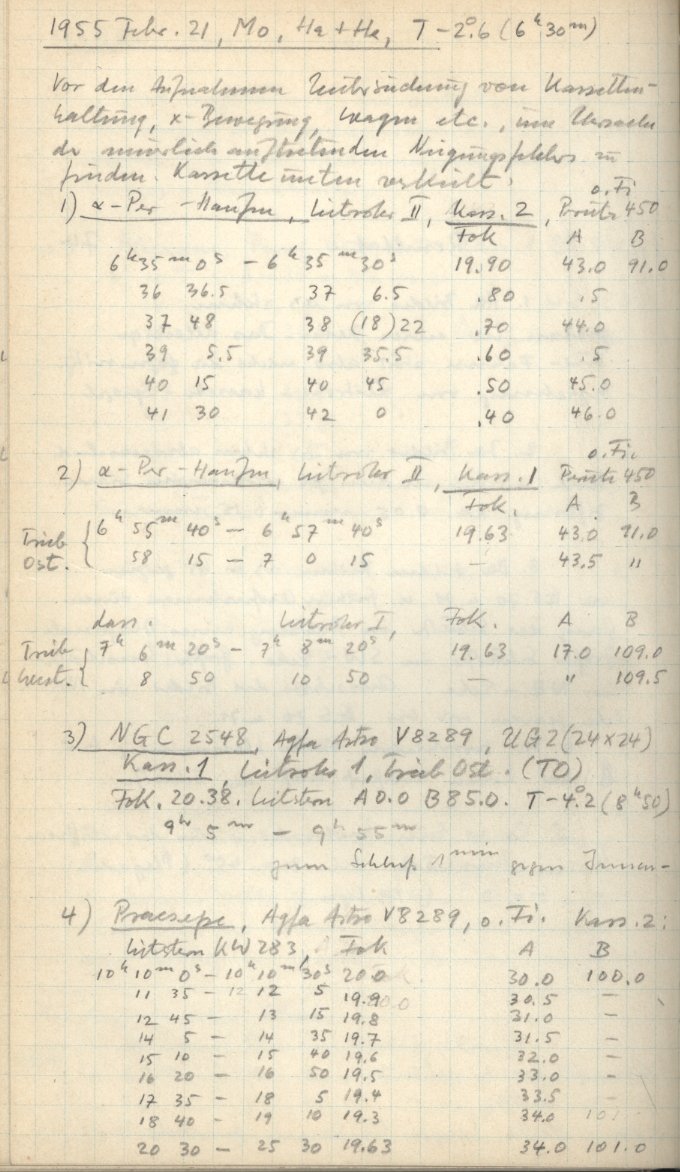 1955 Febr. 21, Mo, Ha + He, T -2°.6 (6ʰ30ᵐ)
Vor den Aufnahmen Untersuchung von Kassetten-
haltung, x-Bewegung, Wagen etc., um Ursache
des neuerlich auftretenden Neigungsfehlers zu
finden. Kassette unten verkeilt.
o. Fi
1) α-Per-Haufen, Leitrohr II, Kass. 2, Perutz 450
Fok A B
6ʰ35ᵐ0ˢ – 6ʰ35ᵐ30ˢ 19.90 43.0 91.0
36 36.5 37 6.5 .80 .5
37 48 38 (18) 22 .70 44.0
39 5.5 39 35.5 .60 .5
40 15 40 45 .50 45.0
41 30 42 0 .40 46.0
o. Fi.
2) α-Per-Haufen, Leitrohr II, Kass. 1 Perutz 450
Fok. A B
Trieb Ost. { 6ʰ 55ᵐ 40ˢ – 6ʰ 57ᵐ 40ˢ 19.63 43.0 91.0
58 15 – 7 0 15 — 43.5 "
dass. Leitrohr I, Fok. A B
Trieb West. { 7ʰ 6ᵐ 20ˢ – 7ʰ 8ᵐ 20ˢ 19.63 17.0 109.0
8 50 10 50 — " 109.5
3) NGC 2548, Agfa Astro V8289, UG2 (24×24)
Kass. 1, Leitrohr 1, Trieb Ost. (TO)
Fok. 20.38. Leitstern A 0.0 B 85.0. T -4°.2 (8ʰ50)
9ʰ 5ᵐ – 9ʰ 55ᵐ
zum Schluß 1ᵐⁱⁿ gegen
4) Praesepe, Agfa Astro V8289, o. Fi. Kass. 2:
Leitstern KW 283, Fok A B
10ʰ10ᵐ0ˢ – 10ʰ10ᵐ30ˢ 20.0 30.0 100.0
11 35 – 12 5 19.9 30.5 –
12 45 – 13 15 19.8 31.0 –
14 5 – 14 35 19.7 31.5 –
15 10 – 15 40 19.6 32.0 –
16 20 – 16 50 19.5 33.0 –
17 35 – 18 5 19.4 33.5 –
18 40 – 19 10 19.3 34.0
20 30 – 25 30 19.63 34.0 101.0